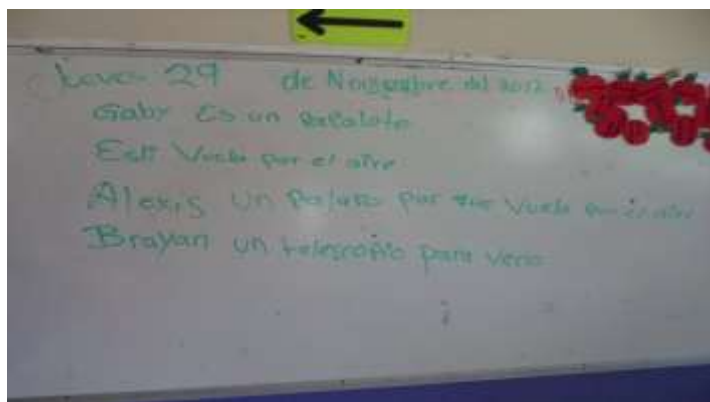 Jueves 29 de Noviembre del 2012
Gaby Es un papalote
Esli Vuela por el aire
Alexis Un Pajaro por que Vuela por el aire
Brayan un telescopio para verlo